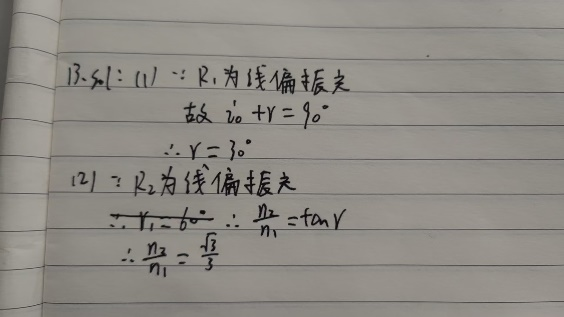 13.sol: (1) ∵ R₁为线偏振光
故 i₀ + r = 90°
∴ r = 30°
(2) ∵ R₂为线偏振光
∴ r₁ = 60° ∴ n₂/n₁ = tan r
∴ n₂/n₁ = √3/3